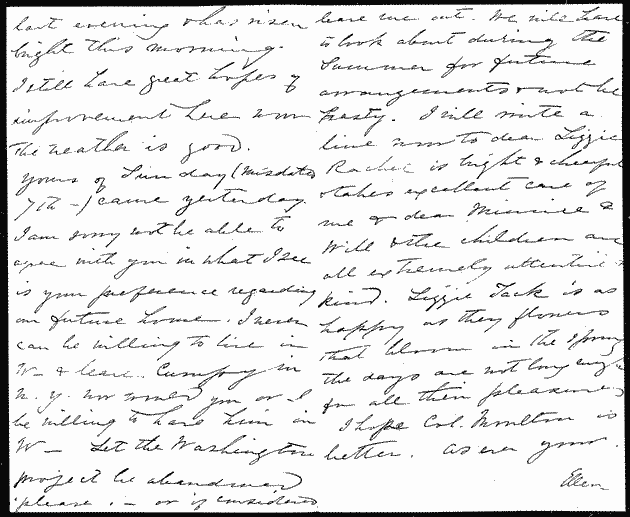 last evening & has risen
bright this morning.
I still have great hopes of
improvement here when
the weather is good.
Yours of Sunday (misdated
7th -) came yesterday
I am sorry not be able to
agree with you in what I see
is your preference regarding
our future home. I never
can be willing to live in
W- & leave Cumpy in
N. Y. nor would you or I
be willing to have him in
W- Let the Washington
project be abandoned
please. - or if considered
leave me out. We will have
to look about during the
Summer for future
arrangements & not be
hasty. I will write a
line now to dear Lizzie
Rachel is bright & cheerful
takes excellent care of
me & dear Minnie &
Will & the children are
all extremely attentive &
kind. Lizzie Jack is as
happy as they flowers
that bloom in the spring
the days are not long enough
for all their pleasures
I hope Col. Moulton is
better. As ever yours.
Ellen